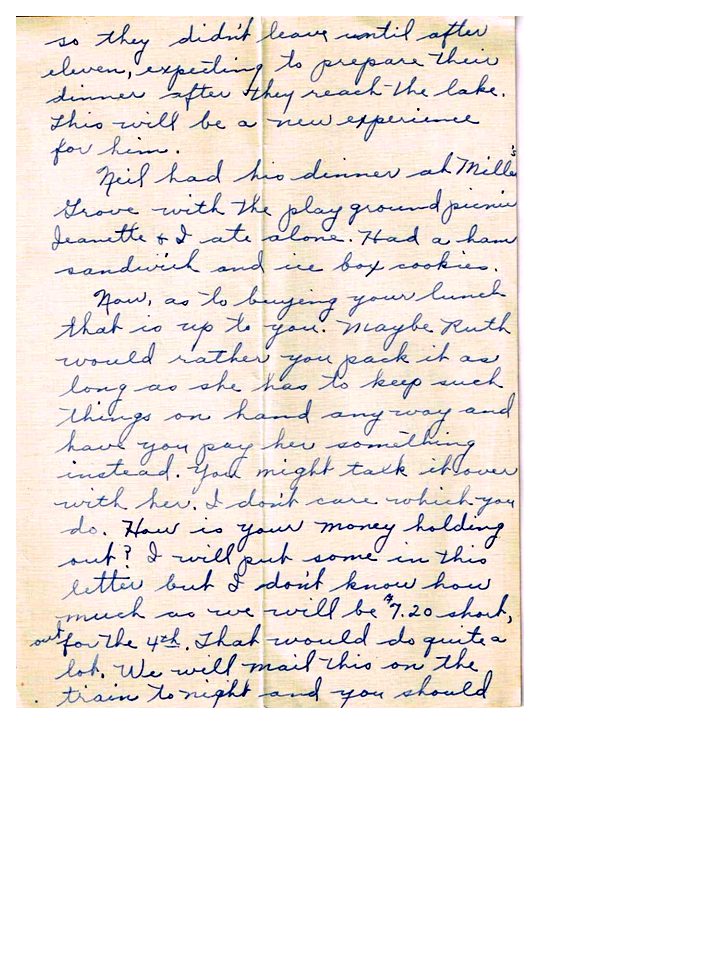 so they didn't leave until after
eleven, expecting to prepare their
dinner after they reach the lake.
This will be a new experience
for him.
Neil had his dinner at Mille's
Grove with the play ground picnic
Jeanette & I ate alone. Had a ham
sandwich and ice box cookies.
Now, as to buying your lunch
that is up to you. Maybe Ruth
would rather you pack it as
long as she has to keep such
things on hand any way and
have you pay her something
instead. You might talk it over
with her. I don't care which you
do. How is your money holding
out? I will put some in this
letter but I don't know how
much as we will be $7.20 short,
out for the 4th. That would do quite a
lot. We will mail this on the
train to night and you should